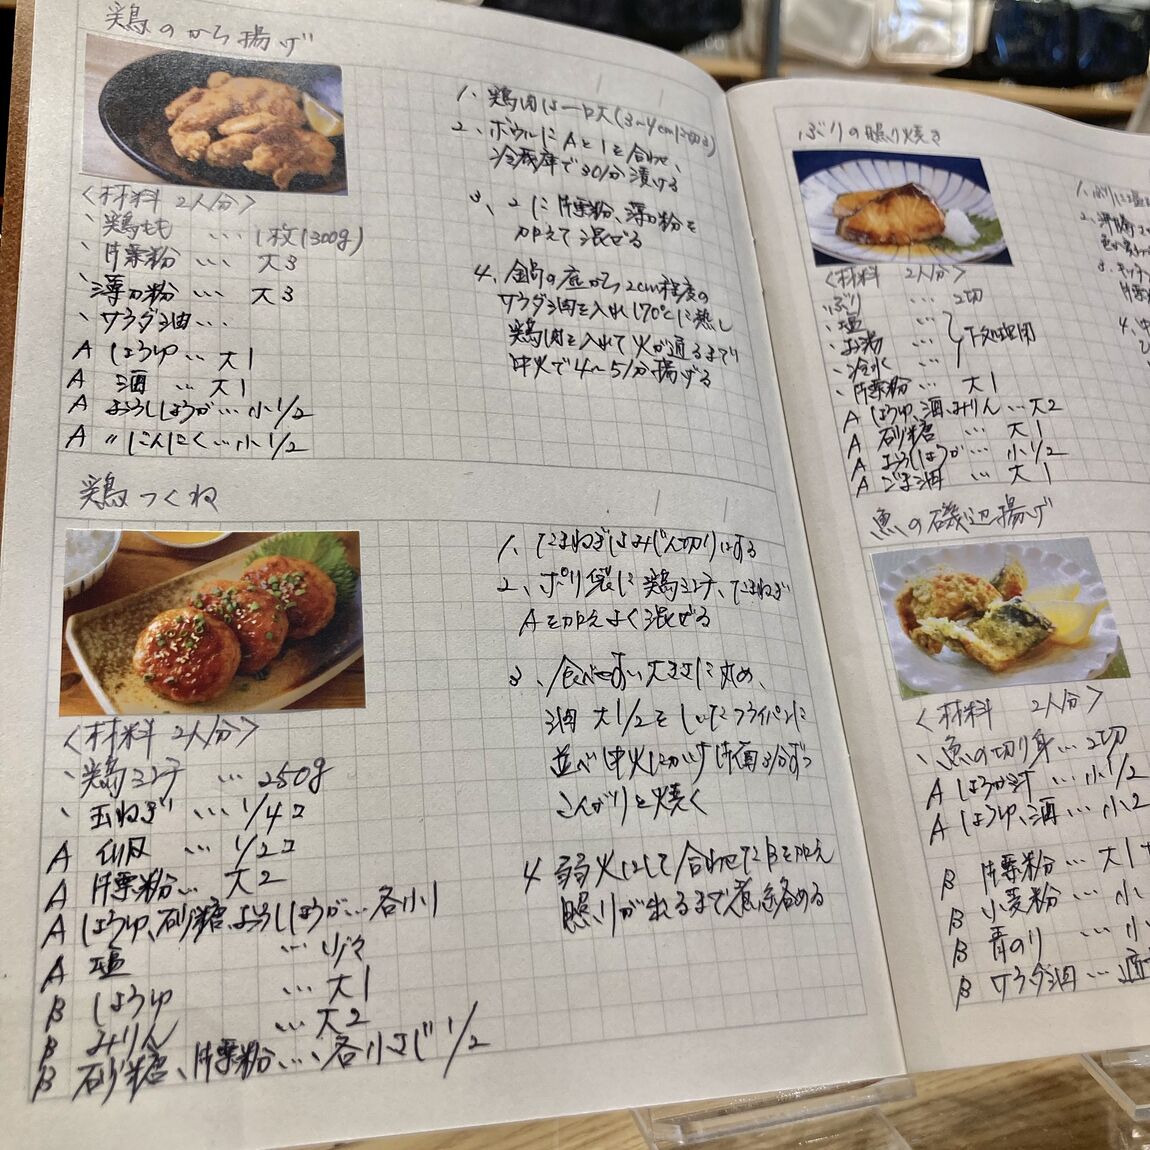 鶏のから揚げ
<材料 2人分>
、鶏もも … 1枚(300g)
、片栗粉 … 大3
、薄力粉 … 大3
、サラダ油 …
A しょうゆ … 大1
A 酒 … 大1
A おろししょうが … 小1/2
A 〃にんにく … 小1/2
1、鶏肉は一口大(3~4cmに切る)
2、ボウルにAと1を合わせ、
冷蔵庫で30分漬ける
3、2に片栗粉、薄力粉を
加えて混ぜる
4、鍋の底から2cm程度の
サラダ油を入れ170℃に熱し
鶏肉を入れて火が通るまで
中火で4~5分揚げる
鶏つくね
<材料 2人分>
、鶏ミンチ … 250g
、玉ねぎ … 1/4コ
A 卵 … 1/2コ
A 片栗粉 … 大2
A しょうゆ、砂糖、おろししょうが … 各小1
A 塩 … 少々
B しょうゆ … 大1
B みりん … 大2
B 砂糖、片栗粉 … 各小さじ1/2
1、たまねぎはみじん切りにする
2、ポリ袋に鶏ミンチ、たまねぎ
Aを加えよく混ぜる
3、食べやすい大きさに丸め、
油 大1/2をしいたフライパンに
並べ中火にかけ片面3分ずつ
こんがりと焼く
4 弱火にして合わせたBを加え
照りが出るまで煮絡める
ぶりの照り焼き
<材料 2人分>
ぶり … 2切
、塩 …
、お湯 … 下処理用
、冷水 …
、片栗粉 … 大1
A しょうゆ、酒、みりん … 大2
A 砂糖 … 大1
A おろししょうが … 小1/2
A ごま油 … 大1
1、ぶりに塩
2、
3、キッチン
片栗粉
4、中
魚の磯辺揚げ
<材料 2人分>
、魚の切り身 … 2切
A しょうが汁 … 小1/2
A しょうゆ、酒 … 小2
B 片栗粉 … 大1
B 小麦粉 … 小
B 青のり … 小
B サラダ油 … 適